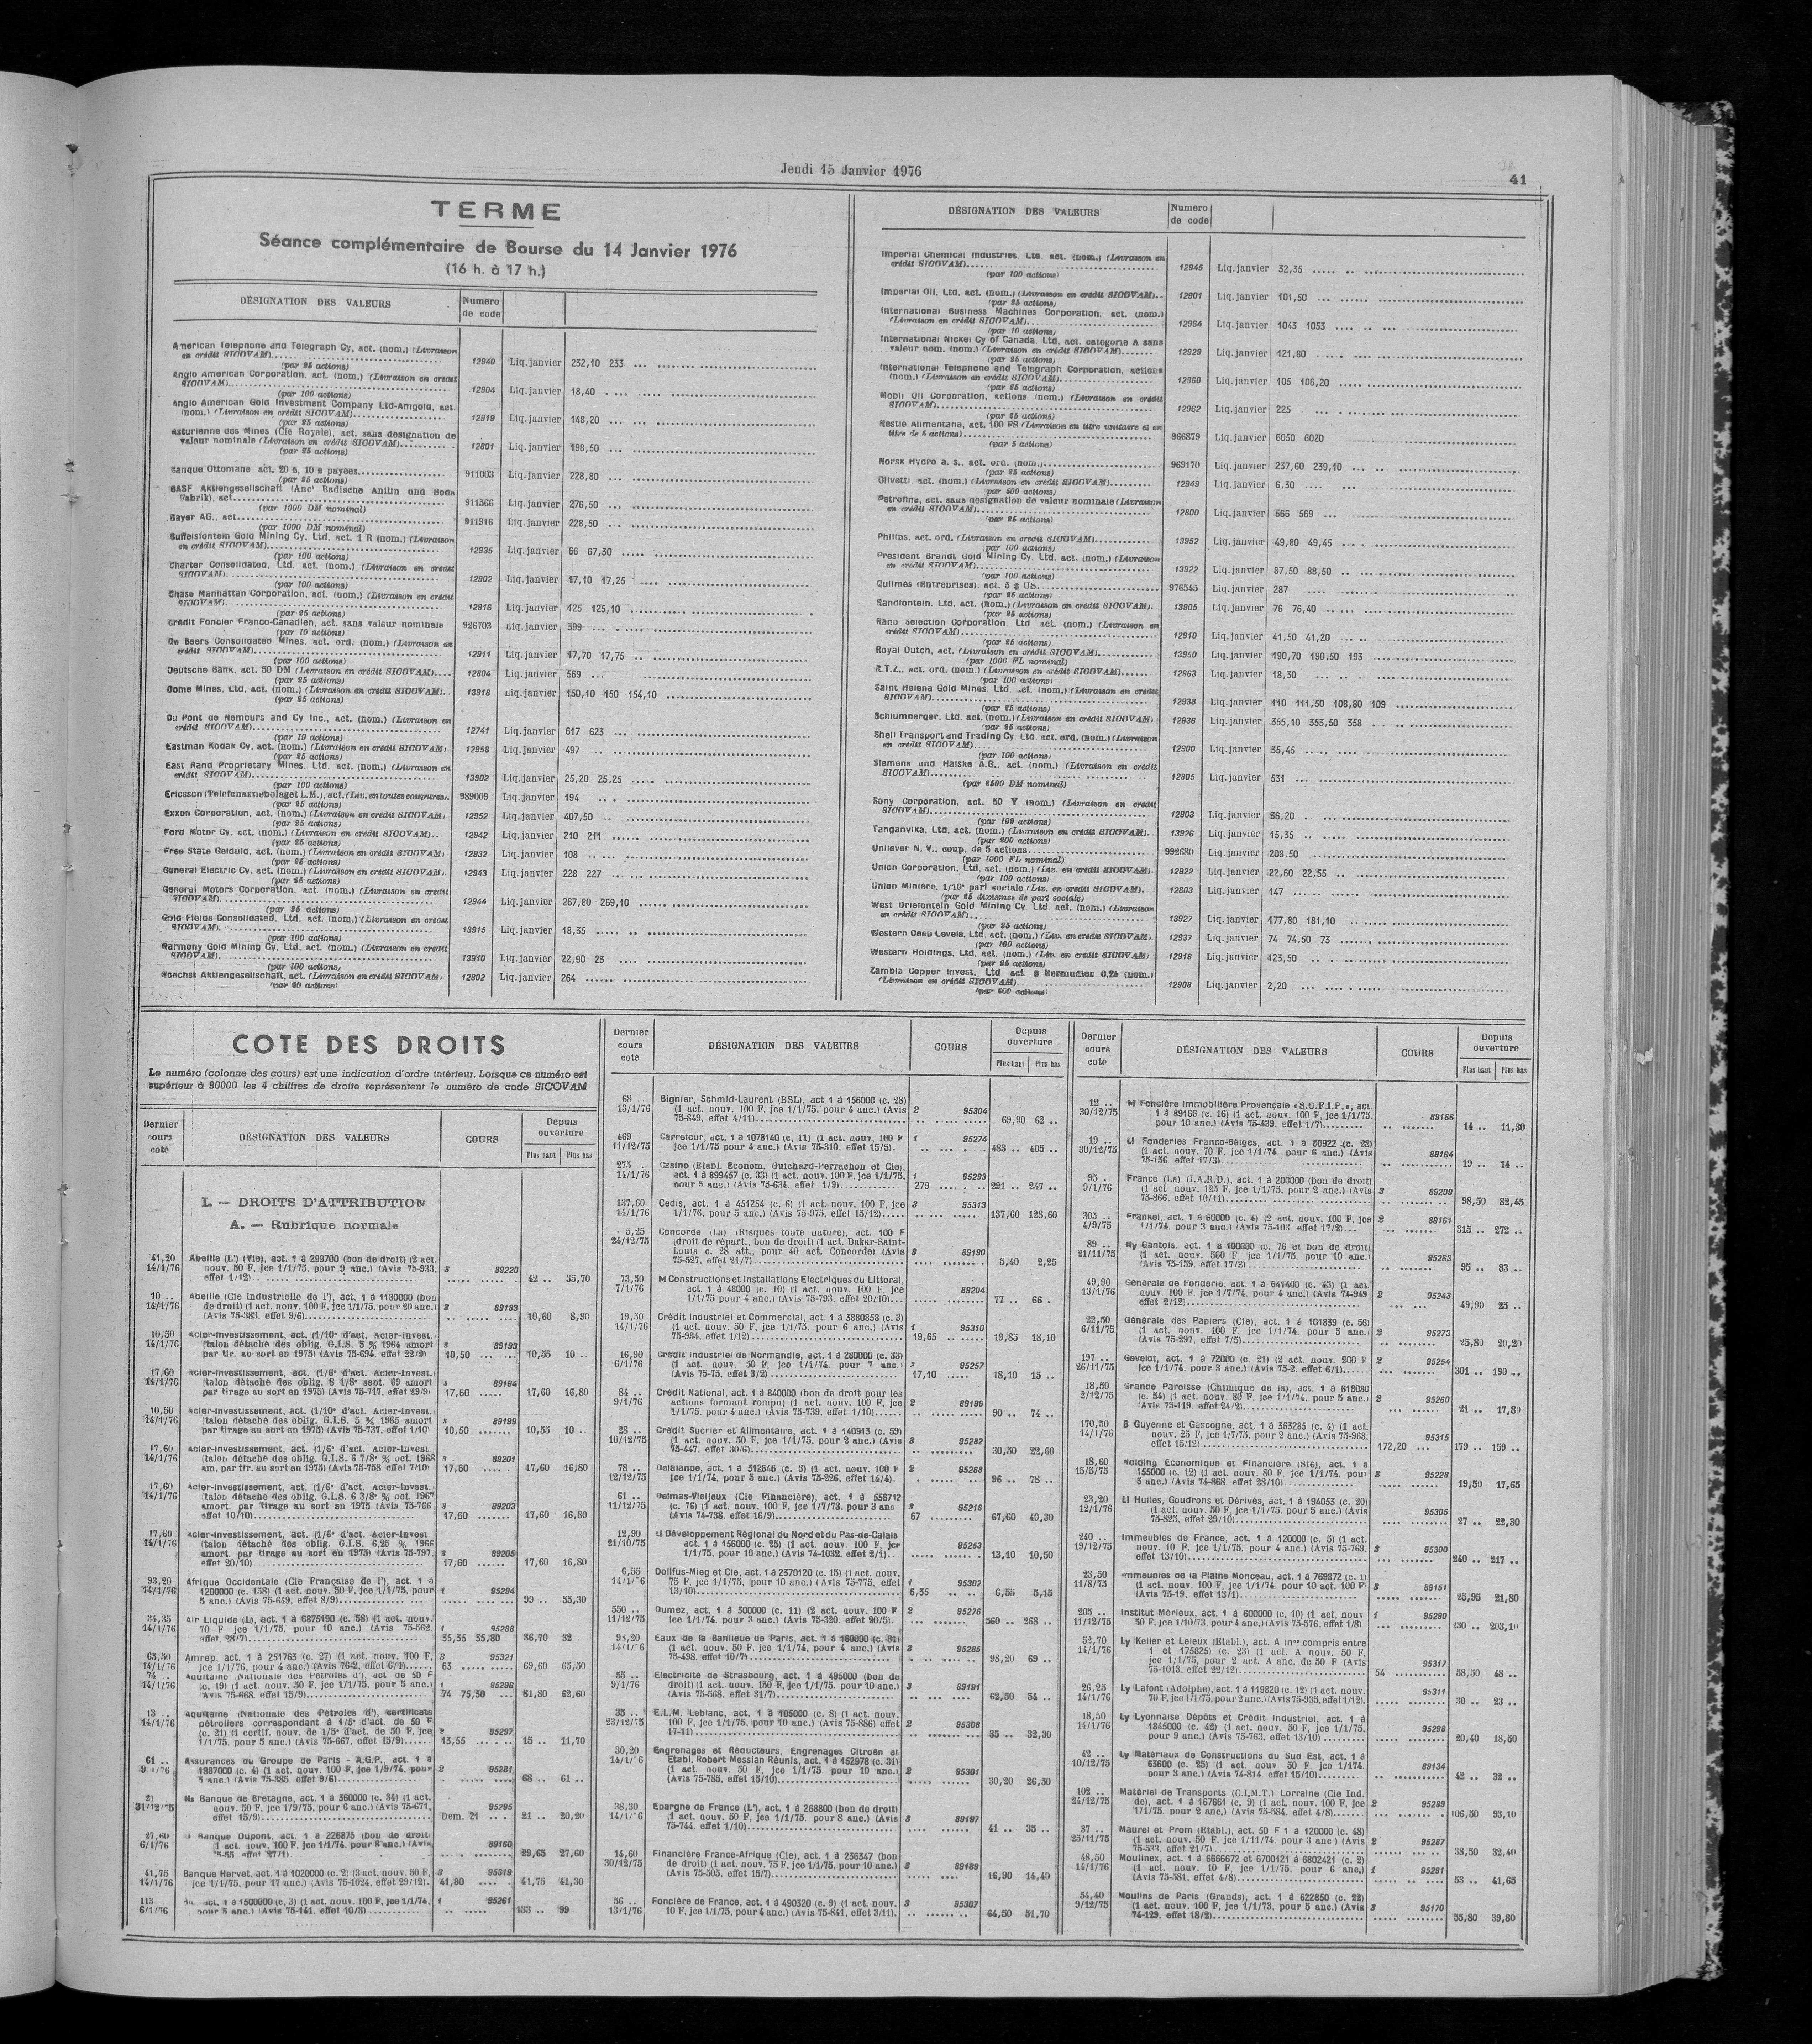 Jeudi 15 Janvier 1976
41
TERME
Séance complémentaire de Bourse du 14 Janvier 1976
(16 h. à 17 h.)
DÉSIGNATION DES VALEURS Numero de code
American Telephone and Telegraph Cy, act. (nom.) (Livraison
en crédit SICOVAM) 12940 Liq. janvier 232,10 233
(par 25 actions)
Anglo American Corporation, act. (nom.) (Livraison en crédit
SICOVAM) 12904 Liq. janvier 18,40
(par 100 actions)
Anglo American Gold Investment Company Ltd-Amgold, act.
(nom.) (Livraison en crédit SICOVAM) 12919 Liq. janvier 148,20
(par 25 actions)
Asturienne des Mines (Cie Royale), act. sans désignation de
valeur nominale (Livraison en crédit SICOVAM) 12801 Liq. janvier 198,50
(par 25 actions)
Banque Ottomane act. 20 £, 10 £ payées 911003 Liq. janvier 228,80
(par 25 actions)
BASF Aktiengesellschaft (Anct Badische Anilin und Soda
Fabrik), act. 911566 Liq. janvier 276,50
(par 1000 DM nominal)
Bayer AG., act. 911916 Liq. janvier 228,50
(par 1000 DM nominal)
Buffelsfontein Gold Mining Cy, Ltd. act. 1 R (nom.) (Livraison
en crédit SICOVAM) 12935 Liq. janvier 66 67,30
(par 100 actions)
Charter Consolidated, Ltd, act. (nom.) (Livraison en crédit
SICOVAM) 12902 Liq. janvier 17,10 17,25
(par 100 actions)
Chase Manhattan Corporation, act. (nom.) (Livraison en crédit
SICOVAM) 12916 Liq. janvier 125 125,10
(par 25 actions)
Crédit Foncier Franco-Canadien, act. sans valeur nominale 926703 Liq. janvier 399
(par 10 actions)
De Beers Consolidated Mines, act. ord. (nom.) (Livraison en
crédit SICOVAM) 12911 Liq. janvier 17,70 17,75
(par 100 actions)
Deutsche Bank, act. 50 DM (Livraison en crédit SICOVAM) 12804 Liq. janvier 569
(par 25 actions)
Dome Mines, Ltd, act. (nom.) (Livraison en crédit SICOVAM) 13918 Liq. janvier 150,10 150 154,10
(par 25 actions)
Du Pont de Nemours and Cy Inc., act. (nom.) (Livraison en
crédit SICOVAM) 12741 Liq. janvier 617 623
(par 10 actions)
Eastman Kodak Cy, act. (nom.) (Livraison en crédit SICOVAM) 12958 Liq. janvier 497
(par 25 actions)
East Rand Proprietary Mines, Ltd, act. (nom.) (Livraison en
crédit SICOVAM) 13902 Liq. janvier 25,20 25,25
(par 100 actions)
Ericsson (Telefonaktiebolaget L.M.), act. (Liv. en toutes coupures) 989009 Liq. janvier 194
(par 25 actions)
Exxon Corporation, act. (nom.) (Livraison en crédit SICOVAM) 12952 Liq. janvier 407,50
(par 25 actions)
Ford Motor Cy, act. (nom.) (Livraison en crédit SICOVAM) 12942 Liq. janvier 210 211
(par 25 actions)
Free State Geduld, act. (nom.) (Livraison en crédit SICOVAM) 12932 Liq. janvier 108
(par 25 actions)
General Electric Cy, act. (nom.) (Livraison en crédit SICOVAM) 12943 Liq. janvier 228 227
(par 25 actions)
General Motors Corporation, act. (nom.) (Livraison en crédit
SICOVAM) 12944 Liq. janvier 267,80 269,10
(par 25 actions)
Gold Fields Consolidated, Ltd, act. (nom.) (Livraison en crédit
SICOVAM) 13915 Liq. janvier 18,35
(par 100 actions)
Harmony Gold Mining Cy, Ltd, act. (nom.) (Livraison en crédit
SICOVAM) 13910 Liq. janvier 22,90 23
(par 100 actions)
Hoechst Aktiengesellschaft, act. (Livraison en crédit SICOVAM) 12802 Liq. janvier 264
(par 20 actions)
DÉSIGNATION DES VALEURS Numero de code
Imperial Chemical Industries, Ltd, act. (nom.) (Livraison en
crédit SICOVAM) 12945 Liq. janvier 32,35
(par 100 actions)
Imperial Oil, Ltd, act. (nom.) (Livraison en crédit SICOVAM) 12901 Liq. janvier 101,50
(par 25 actions)
International Business Machines Corporation, act. (nom.)
(Livraison en crédit SICOVAM) 12964 Liq. janvier 1043 1053
(par 10 actions)
International Nickel Cy of Canada, Ltd, act. catégorie A sans
valeur nom. (nom.) (Livraison en crédit SICOVAM) 12929 Liq. janvier 121,80
(par 25 actions)
International Telephone and Telegraph Corporation, actions
(nom.) (Livraison en crédit SICOVAM) 12960 Liq. janvier 105 106,20
(par 25 actions)
Mobil Oil Corporation, actions (nom.) (Livraison en crédit
SICOVAM) 12962 Liq. janvier 225
(par 25 actions)
Nestlé Alimentana, act. 100 FS (Livraison en titre unitaire et en
titre de 5 actions) 966879 Liq. janvier 6050 6020
(par 5 actions)
Norsk Hydro a. s., act. ord. (nom.) 969170 Liq. janvier 237,60 239,10
(par 25 actions)
Olivetti, act. (nom.) (Livraison en crédit SICOVAM) 12949 Liq. janvier 6,30
(par 500 actions)
Petrofina, act. sans désignation de valeur nominale (Livraison
en crédit SICOVAM) 12800 Liq. janvier 566 569
(par 25 actions)
Philips, act. ord. (Livraison en crédit SICOVAM) 13952 Liq. janvier 49,80 49,45
(par 100 actions)
President Brand Gold Mining Cy, Ltd, act. (nom.) (Livraison
en crédit SICOVAM) 13922 Liq. janvier 87,50 88,50
(par 100 actions)
Quilmes (Entreprises), act. 5 $ US 976545 Liq. janvier 287
(par 25 actions)
Randfontein, Ltd, act. (nom.) (Livraison en crédit SICOVAM) 13905 Liq. janvier 76 76,40
(par 25 actions)
Rand Selection Corporation, Ltd act. (nom.) (Livraison en
crédit SICOVAM) 12910 Liq. janvier 41,50 41,20
(par 25 actions)
Royal Dutch, act. (Livraison en crédit SICOVAM) 13950 Liq. janvier 190,70 190,50 193
(par 1000 FL nominal)
R.T.Z., act. ord. (nom.) (Livraison en crédit SICOVAM) 12963 Liq. janvier 18,30
(par 100 actions)
Saint Helena Gold Mines, Ltd, act. (nom.) (Livraison en crédit
SICOVAM) 12938 Liq. janvier 110 111,50 108,80 109
(par 25 actions)
Schlumberger, Ltd, act. (nom.) (Livraison en crédit SICOVAM) 12936 Liq. janvier 355,10 353,50 358
(par 25 actions)
Shell Transport and Trading Cy, Ltd, act. ord. (nom.) (Livraison
en crédit SICOVAM) 12900 Liq. janvier 35,45
(par 100 actions)
Siemens und Halske A.G., act. (nom.) (Livraison en crédit
SICOVAM) 12805 Liq. janvier 531
(par 2500 DM nominal)
Sony Corporation, act. 50 Y (nom.) (Livraison en crédit
SICOVAM) 12903 Liq. janvier 36,20
(par 100 actions)
Tanganyika, Ltd, act. (nom.) (Livraison en crédit SICOVAM) 13926 Liq. janvier 15,35
(par 200 actions)
Unilever N. V., coup. de 5 actions 992680 Liq. janvier 208,50
(par 1000 FL nominal)
Union Corporation, Ltd, act. (nom.) (Livraison en crédit SICOVAM) 12922 Liq. janvier 22,60 22,55
(par 100 actions)
Union Minière, 1/10e part sociale (Liv. en crédit SICOVAM) 12803 Liq. janvier 147
(par 25 dixièmes de part sociale)
West Driefontein Gold Mining Cy Ltd, act. (nom.) (Livraison
en crédit SICOVAM) 13927 Liq. janvier 177,80 181,10
(par 25 actions)
Western Deep Levels, Ltd, act. (nom.) (Liv. en crédit SICOVAM) 12937 Liq. janvier 74 74,50 73
(par 100 actions)
Western Holdings, Ltd, act. (nom.) (Liv. en crédit SICOVAM) 12918 Liq. janvier 123,50
(par 25 actions)
Zambia Copper Invest. Ltd act. $ Bermudien 0,24 (nom.)
(Livraison en crédit SICOVAM) 12908 Liq. janvier 2,20
(par 500 actions)
COTE DES DROITS
Le numéro (colonne des cours) est une indication d'ordre intérieur. Lorsque ce numéro est
supérieur à 90000 les 4 chiffres de droite représentent le numéro de code SICOVAM
Dernier cours coté DÉSIGNATION DES VALEURS COURS Depuis ouverture Plus haut Plus bas
I. — DROITS D'ATTRIBUTION
A. — Rubrique normale
41,20 Abeille (L') (Vie), act. 1 à 299700 (bon de droit) (2 act.
14/1/76 nouv. 50 F, jce 1/1/75, pour 9 anc.) (Avis 75-933, 3 89220
effet 1/12) 42 .. 35,70
10 .. Abeille (Cie Industrielle de l'), act. 1 à 1180000 (bon
14/1/76 de droit) (1 act. nouv. 100 F, jce 1/1/75, pour 20 anc.) 3 89183
(Avis 75-383, effet 9/6) 10,60 8,90
10,50 Acier-Investissement, act. (1/10e d'act. Acier-Invest.
14/1/76 (talon détaché des oblig. G.I.S. 5 % 1964 amort 3 89193
par tir. au sort en 1975) (Avis 75-694, effet 22/9) 10,50 10,55 10 ..
17,60 Acier-Investissement, act. (1/6e d'act. Acier-Invest.
14/1/76 (talon détaché des oblig. 8 1/8e sept. 69 amort 3 89194
par tirage au sort en 1975) (Avis 75-717, effet 29/9) 17,60 17,60 16,80
10,50 Acier-Investissement, act. (1/10e d'act. Acier-Invest.
14/1/76 (talon détaché des oblig. G.I.S. 5 % 1965 amort 89199
par tirage au sort en 1975) (Avis 75-737, effet 1/10) 10,50 10,55 10 ..
17,60 Acier-Investissement, act. (1/6e d'act. Acier-Invest.
14/1/76 (talon détaché des oblig. G.I.S. 6 7/8e % oct. 1968 3 89201
am. par tir. au sort en 1975) (Avis 75-758 effet 7/10) 17,60 17,60 16,80
17,60 Acier-Investissement, act. (1/6e d'act. Acier-Invest.
14/1/76 (talon détaché des oblig. G.I.S. 6 3/8e % oct. 1967
amort. par tirage au sort en 1975 (Avis 75-766 3 89203
effet 10/10) 17,60 17,60 16,80
17,60 Acier-Investissement, act. (1/6e d'act. Acier-Invest.
14/1/76 (talon détaché des oblig. G.I.S. 6,25 % 1966
amort. par tirage au sort en 1975) (Avis 75-797, 3 89205
effet 20/10) 17,60 17,60 16,80
93,20 Afrique Occidentale (Cie Française de l'), act. 1 à
14/1/76 1200000 (c. 158) (1 act. nouv. 50 F, jce 1/1/75, pour 1 95294
5 anc.) (Avis 75-649, effet 8/9) 99 .. 55,30
34,35 Air Liquide (L), act. 1 à 6875190 (c. 58) (1 act. nouv.
14/1/76 70 F jce 1/1/75, pour 10 anc.) (Avis 75-562, 1 95288
effet 28/7) 35,35 35,80 36,70 32
65,50 Amrep, act. 1 à 251763 (c. 27) (1 act. nouv. 100 F, 3 95321
14/1/76 jce 1/1/76, pour 4 anc.) (Avis 76-2, effet 6/1) 63 69,60 65,50
74 .. Aquitaine (Nationale des Pétroles d'), act de 50 F
14/1/76 (c. 19) (1 act. nouv. 50 F, jce 1/1/75, pour 5 anc.) 1 95296
(Avis 75-668, effet 15/9) 74 75,50 81,80 62,60
13 .. Aquitaine (Nationale des Pétroles d'), certificats
14/1/76 pétroliers correspondant à 1/5e d'act. de 50 F
(c. 21) (1 certif. nouv. de 1/5e d'act. de 50 F, jce 2 95297
1/1/75, pour 5 anc.) (Avis 75-667, effet 15/9) 13,55 15 .. 11,70
61 .. Assurances du Groupe de Paris - A.G.P., act. 1 à
9/1/76 1987000 (c. 4) (1 act. nouv. 100 F, jce 1/9/74, pour 2 95281
5 anc.) (Avis 75-385, effet 9/6) 68 .. 61 ..
21 Ns Banque de Bretagne, act. 1 à 360000 (c. 34) (1 act.
31/12/75 nouv. 50 F, jce 1/9/75, pour 6 anc.) (Avis 75-671, 95295
effet 15/9) Dem. 21 21 .. 20,20
27,60 Banque Dupont, act. 1 à 226875 (bon de droit)
6/1/76 1 act. nouv. 100 F, jce 1/1/74, pour 8 anc.) (Avis 89160
75-55 effet 27/1) 29,65 27,60
41,75 Banque Hervet, act. 1 à 1020000 (c. 2) (3 act. nouv. 50 F, 3 95319
14/1/76 jce 1/1/75, pour 17 anc.) (Avis 75-1024, effet 29/12) 41,80 41,75 41,30
113 act. 1 à 1500000 (c. 3) (1 act. nouv. 100 F, jce 1/1/74, 1 95261
6/1/76 pour 5 anc.) (Avis 75-141, effet 10/3) 133 .. 99
Dernier cours coté DÉSIGNATION DES VALEURS COURS Depuis ouverture Plus haut Plus bas
68 Bignier, Schmid-Laurent (BSL), act 1 à 156000 (c. 28)
13/1/76 (1 act. nouv. 100 F, jce 1/1/75, pour 4 anc.) (Avis 2 95304
75-849, effet 4/11) 69,90 62 ..
469 Carrefour, act. 1 à 1078140 (c. 11) (1 act. nouv. 100 F 1 95274
11/12/75 jce 1/1/75 pour 4 anc.) (Avis 75-310, effet 15/5) 483 .. 405 ..
275 .. Casino (Etabl. Econom. Guichard-Perrachon et Cie),
14/1/76 act. 1 à 899457 (c. 33) (1 act. nouv. 100 F, jce 1/1/75, 1 95293
pour 5 anc.) (Avis 75-634, effet 1/9) 279 291 .. 247 ..
137,60 Cedis, act. 1 à 451254 (c. 6) (1 act. nouv. 100 F, jce 3 95313
14/1/76 1/1/76, pour 5 anc.) (Avis 75-975, effet 15/12) 137,60 128,60
5,25 Concorde (La) (Risques toute nature), act. 100 F
24/12/75 (droit de répart., bon de droit) (1 act. Dakar-Saint-
Louis c. 28 att., pour 40 act. Concorde) (Avis 3 89190
75-527, effet 21/7) 5,40 2,25
73,50 M Constructions et Installations Electriques du Littoral,
7/1/76 act. 1 à 48000 (c. 10) (1 act. nouv. 100 F, jce 89204
1/1/75 pour 4 anc.) (Avis 75-793, effet 20/10) 77 .. 66 .
19,50 Crédit Industriel et Commercial, act. 1 à 3880858 (c. 3)
14/1/76 (1 act. nouv. 50 F, jce 1/1/75, pour 6 anc.) (Avis 1 95310
75-934, effet 1/12) 19,65 19,85 18,10
16,90 Crédit Industriel de Normandie, act. 1 à 280000 (c. 33)
6/1/76 (1 act. nouv. 50 F, jce 1/1/74, pour 7 anc.) 3 95257
(Avis 75-75, effet 3/2) 17,10 18,10 15 ..
84 .. Crédit National, act. 1 à 840000 (bon de droit pour les
9/1/76 actions formant rompu) (1 act. nouv. 100 F, jce 2 89196
1/1/75, pour 4 anc.) (Avis 75-739, effet 1/10) 90 .. 74 ..
28 .. Crédit Sucrier et Alimentaire, act. 1 à 140913 (c. 59)
10/12/75 (1 act. nouv. 50 F, jce 1/1/75, pour 2 anc.) (Avis 3 95282
75-447, effet 30/6) 30,50 22,60
78 .. Delalande, act. 1 à 512646 (c. 3) (1 act. nouv. 100 F 2 95268
12/12/75 jce 1/1/74, pour 5 anc.) (Avis 75-226, effet 14/4) 96 .. 78 ..
61 .. Delmas-Vieljeux (Cie Financière), act. 1 à 556712
11/12/75 (c. 76) (1 act. nouv. 100 F, jce 1/7/73, pour 3 anc 3 95218
(Avis 74-738, effet 16/9) 67 67,60 49,30
12,90 Développement Régional du Nord et du Pas-de-Calais
21/10/75 act. 1 à 156000 (c. 25) (1 act. nouv. 100 F, jce 95253
1/1/75, pour 10 anc.) (Avis 74-1032, effet 2/1) 13,10 10,50
6,55 Dollfus-Mieg et Cie, act. 1 à 2370120 (c. 15) (1 act. nouv.
14/1/76 75 F, jce 1/1/75, pour 10 anc.) (Avis 75-775, effet 1 95302
13/10) 6,35 6,55 5,15
550 .. Dumez, act. 1 à 300000 (c. 11) (2 act. nouv. 100 F 2 95276
11/12/75 jce 1/1/74, pour 3 anc.) (Avis 75-320, effet 20/5) 560 .. 268 ..
98,20 Eaux de la Banlieue de Paris, act. 1 à 160000 (c. 31)
14/1/76 (1 act. nouv. 50 F, jce 1/1/74, pour 4 anc.) (Avis 3 95285
75-498, effet 10/7) 98,20 69 ..
55 .. Electricité de Strasbourg, act. 1 à 495000 (bon de
9/1/76 droit) (1 act. nouv. 150 F, jce 1/1/75, pour 10 anc.) 3 89191
(Avis 75-568, effet 31/7) 62,50 54 ..
35 .. E.L.M. Leblanc, act. 1 à 105000 (c. 8) (1 act. nouv.
23/12/75 100 F, jce 1/1/75, pour 10 anc.) (Avis 75-886) effet 2 95308
17-11) 35 .. 32,30
30,20 Engrenages et Réducteurs, Engrenages Citroën et
14/1/76 Etabl. Robert Messian Réunis, act. 1 à 152978 (c. 31)
(1 act. nouv. 50 F, jce 1/1/75 pour 10 anc.) 2 95301
(Avis 75-785, effet 15/10) 30,20 26,50
38,30 Epargne de France (L'), act. 1 à 268800 (bon de droit)
14/1/76 (1 act. nouv. 50 F, jce 1/1/75, pour 8 anc.) (Avis 3 89197
75-744, effet 1/10) 41 .. 35 ..
14,60 Financière France-Afrique (Cie), act. 1 à 236347 (bon
30/12/75 de droit) (1 act. nouv. 75 F, jce 1/1/75, pour 10 anc.) 3 89189
(Avis 75-505, effet 15/7) 16,90 14,40
56 .. Foncière de France, act. 1 à 490320 (c. 9) (1 act. nouv. 3 95307
13/1/76 10 F, jce 1/1/75, pour 4 anc.) (Avis 75-841, effet 3/11) 64,50 51,70
Dernier cours coté DÉSIGNATION DES VALEURS COURS Depuis ouverture Plus haut Plus bas
12 .. M Foncière Immobilière Provençale « S.O.F.I.P.», act.
30/12/75 1 à 89166 (c. 16) (1 act. nouv. 100 F, jce 1/1/75, 89186
pour 10 anc.) (Avis 75-439, effet 1/7) 14 .. 11,30
19 .. Li Fonderies Franco-Belges, act. 1 à 80922 (c. 28)
30/12/75 (1 act. nouv. 70 F, jce 1/1/74, pour 6 anc.) (Avis 89164
75-156 effet 17/3) 19 .. 14 ..
95 . France (La) (I.A.R.D.), act. 1 à 200000 (bon de droit)
9/1/76 (1 act nouv. 125 F, jce 1/1/75, pour 2 anc.) (Avis 3 89209
75-866, effet 10/11) 98,50 82,45
305 .. Frankel, act. 1 à 60000 (c. 4) (2 act. nouv. 100 F, jce 2 89161
4/9/75 1/1/74, pour 3 anc.) (Avis 75-103 effet 17/2) 315 .. 272 ..
89 .. Ny Gantois, act. 1 à 100000 (c. 76 et bon de droit)
21/11/75 (1 act. nouv. 560 F, jce 1/1/75, pour 10 anc.) 95263
(Avis 75-159, effet 17/3) 95 .. 83 ..
49,90 Générale de Fonderie, act. 1 à 641400 (c. 43) (1 act.
13/1/76 nouv 100 F, jce 1/7/74, pour 4 anc.) (Avis 74-949 2 95243
effet 2/12) 49,90 25 ..
22,50 Générale des Papiers (Cie), act. 1 à 101839 (c. 56)
6/11/75 (1 act. nouv. 100 F, jce 1/1/74, pour 5 anc.) 2 95273
(Avis 75-297, effet 7/5) 25,80 20,20
197 .. Gévelot, act. 1 à 72000 (c. 21) (2 act. nouv. 200 F 2 95254
26/11/75 jce 1/1/74, pour 3 anc.) (Avis 75-2, effet 6/1) 301 .. 190 ..
18,50 Grande Paroisse (Chimique de la), act. 1 à 618080
2/12/75 (c. 54) (1 act. nouv. 80 F, jce 1/1/74, pour 5 anc.) 2 95260
(Avis 75-119, effet 24/2) 21 .. 17,80
170,50 B Guyenne et Gascogne, act. 1 à 363285 (c. 4) (1 act.
14/1/76 nouv. 25 F, jce 1/7/75, pour 2 anc.) (Avis 75-963, 95315
effet 15/12) 172,20 179 .. 159 ..
18,60 Holding Economique et Financière (Sté), act. 1 à
15/5/75 155000 (c. 12) (1 act. nouv. 80 F, jce 1/1/74, pour 3 95228
5 anc.) (Avis 74-868, effet 28/10) 19,50 17,65
23,20 Li Huiles, Goudrons et Dérivés, act. 1 à 194053 (c. 20)
12/1/76 (1 act. nouv. 50 F, jce 1/1/75, pour 5 anc.) (Avis 95305
75-823, effet 29/10) 27 .. 22,30
240 .. Immeubles de France, act. 1 à 120000 (c. 5) (1 act.
19/12/75 nouv. 10 F, jce 1/1/75, pour 4 anc.) (Avis 75-769, 3 95300
effet 13/10) 240 .. 217 ..
23,50 Immeubles de la Plaine Monceau, act. 1 à 769872 (c. 1)
11/8/75 (1 act. nouv. 100 F, jce 1/1/74, pour 10 act. 100 F) 3 89151
(Avis 75-19, effet 13/1) 25,95 21,80
205 .. Institut Mérieux, act. 1 à 600000 (c. 10) (1 act. nouv 1 95290
11/12/75 50 F, jce 1/10/73, pour 4 anc.) (Avis 75-576, effet 1/8) 430 .. 203,10
52,70 Ly Keller et Leleux (Etabl.), act. A (nos compris entre
14/1/76 1 et 175825) (c. 23) (1 act. A nouv. 50 F,
jce 1/1/75, pour 2 act. A anc. de 50 F (Avis 95317
75-1013, effet 22/12) 54 58,50 48 ..
26,25 Ly Lafont (Adolphe), act. 1 à 119820 (c. 12) (1 act. nouv. 95311
14/1/76 70 F, jce 1/1/75, pour 2 anc.) (Avis 75-935, effet 1/12) 30 .. 23 ..
18,50 Ly Lyonnaise Dépôts et Crédit Industriel, act. 1 à
14/1/76 1845000 (c. 42) (1 act. nouv. 50 F, jce 1/1/75, 95298
pour 9 anc.) (Avis 75-763, effet 13/10) 20,40 18,50
42 .. Ly Matériaux de Constructions du Sud Est, act. 1 à
10/12/75 63600 (c. 25) (1 act. nouv 50 F, jce 1/174, 89134
pour 3 anc.) (Avis 74-814 effet 15/10) 42 .. 32 ..
102 .. Matériel de Transports (C.I.M.T.) Lorraine (Cie Ind.
24/12/75 de), act. 1 à 167661 (c. 9) (1 act. nouv. 100 F, jce 2 95289
1/1/75, pour 2 anc.) (Avis 75-584, effet 4/8) 106,50 93,10
37 .. Maurel et Prom (Etabl.), act. 50 F 1 à 120000 (c. 48)
25/11/75 (1 act. nouv. 50 F, jce 1/11/74, pour 3 anc) (Avis 2 95287
75-533, effet 21/7) 38,50 32,40
48,50 Moulinex, act. 1 à 6666672 et 6700121 à 6802421 (c. 2)
14/1/76 (1 act. nouv. 10 F, jce 1/1/75, pour 6 anc.) 1 95291
(Avis 75-581, effet 4/8) 53 .. 41,65
54,40 Moulins de Paris (Grands), act. 1 à 622850 (c. 22)
9/12/75 (1 act. nouv. 100 F, jce 1/1/73, pour 5 anc.) (Avis 3 95170
74-129, effet 18/2) 55,80 39,80